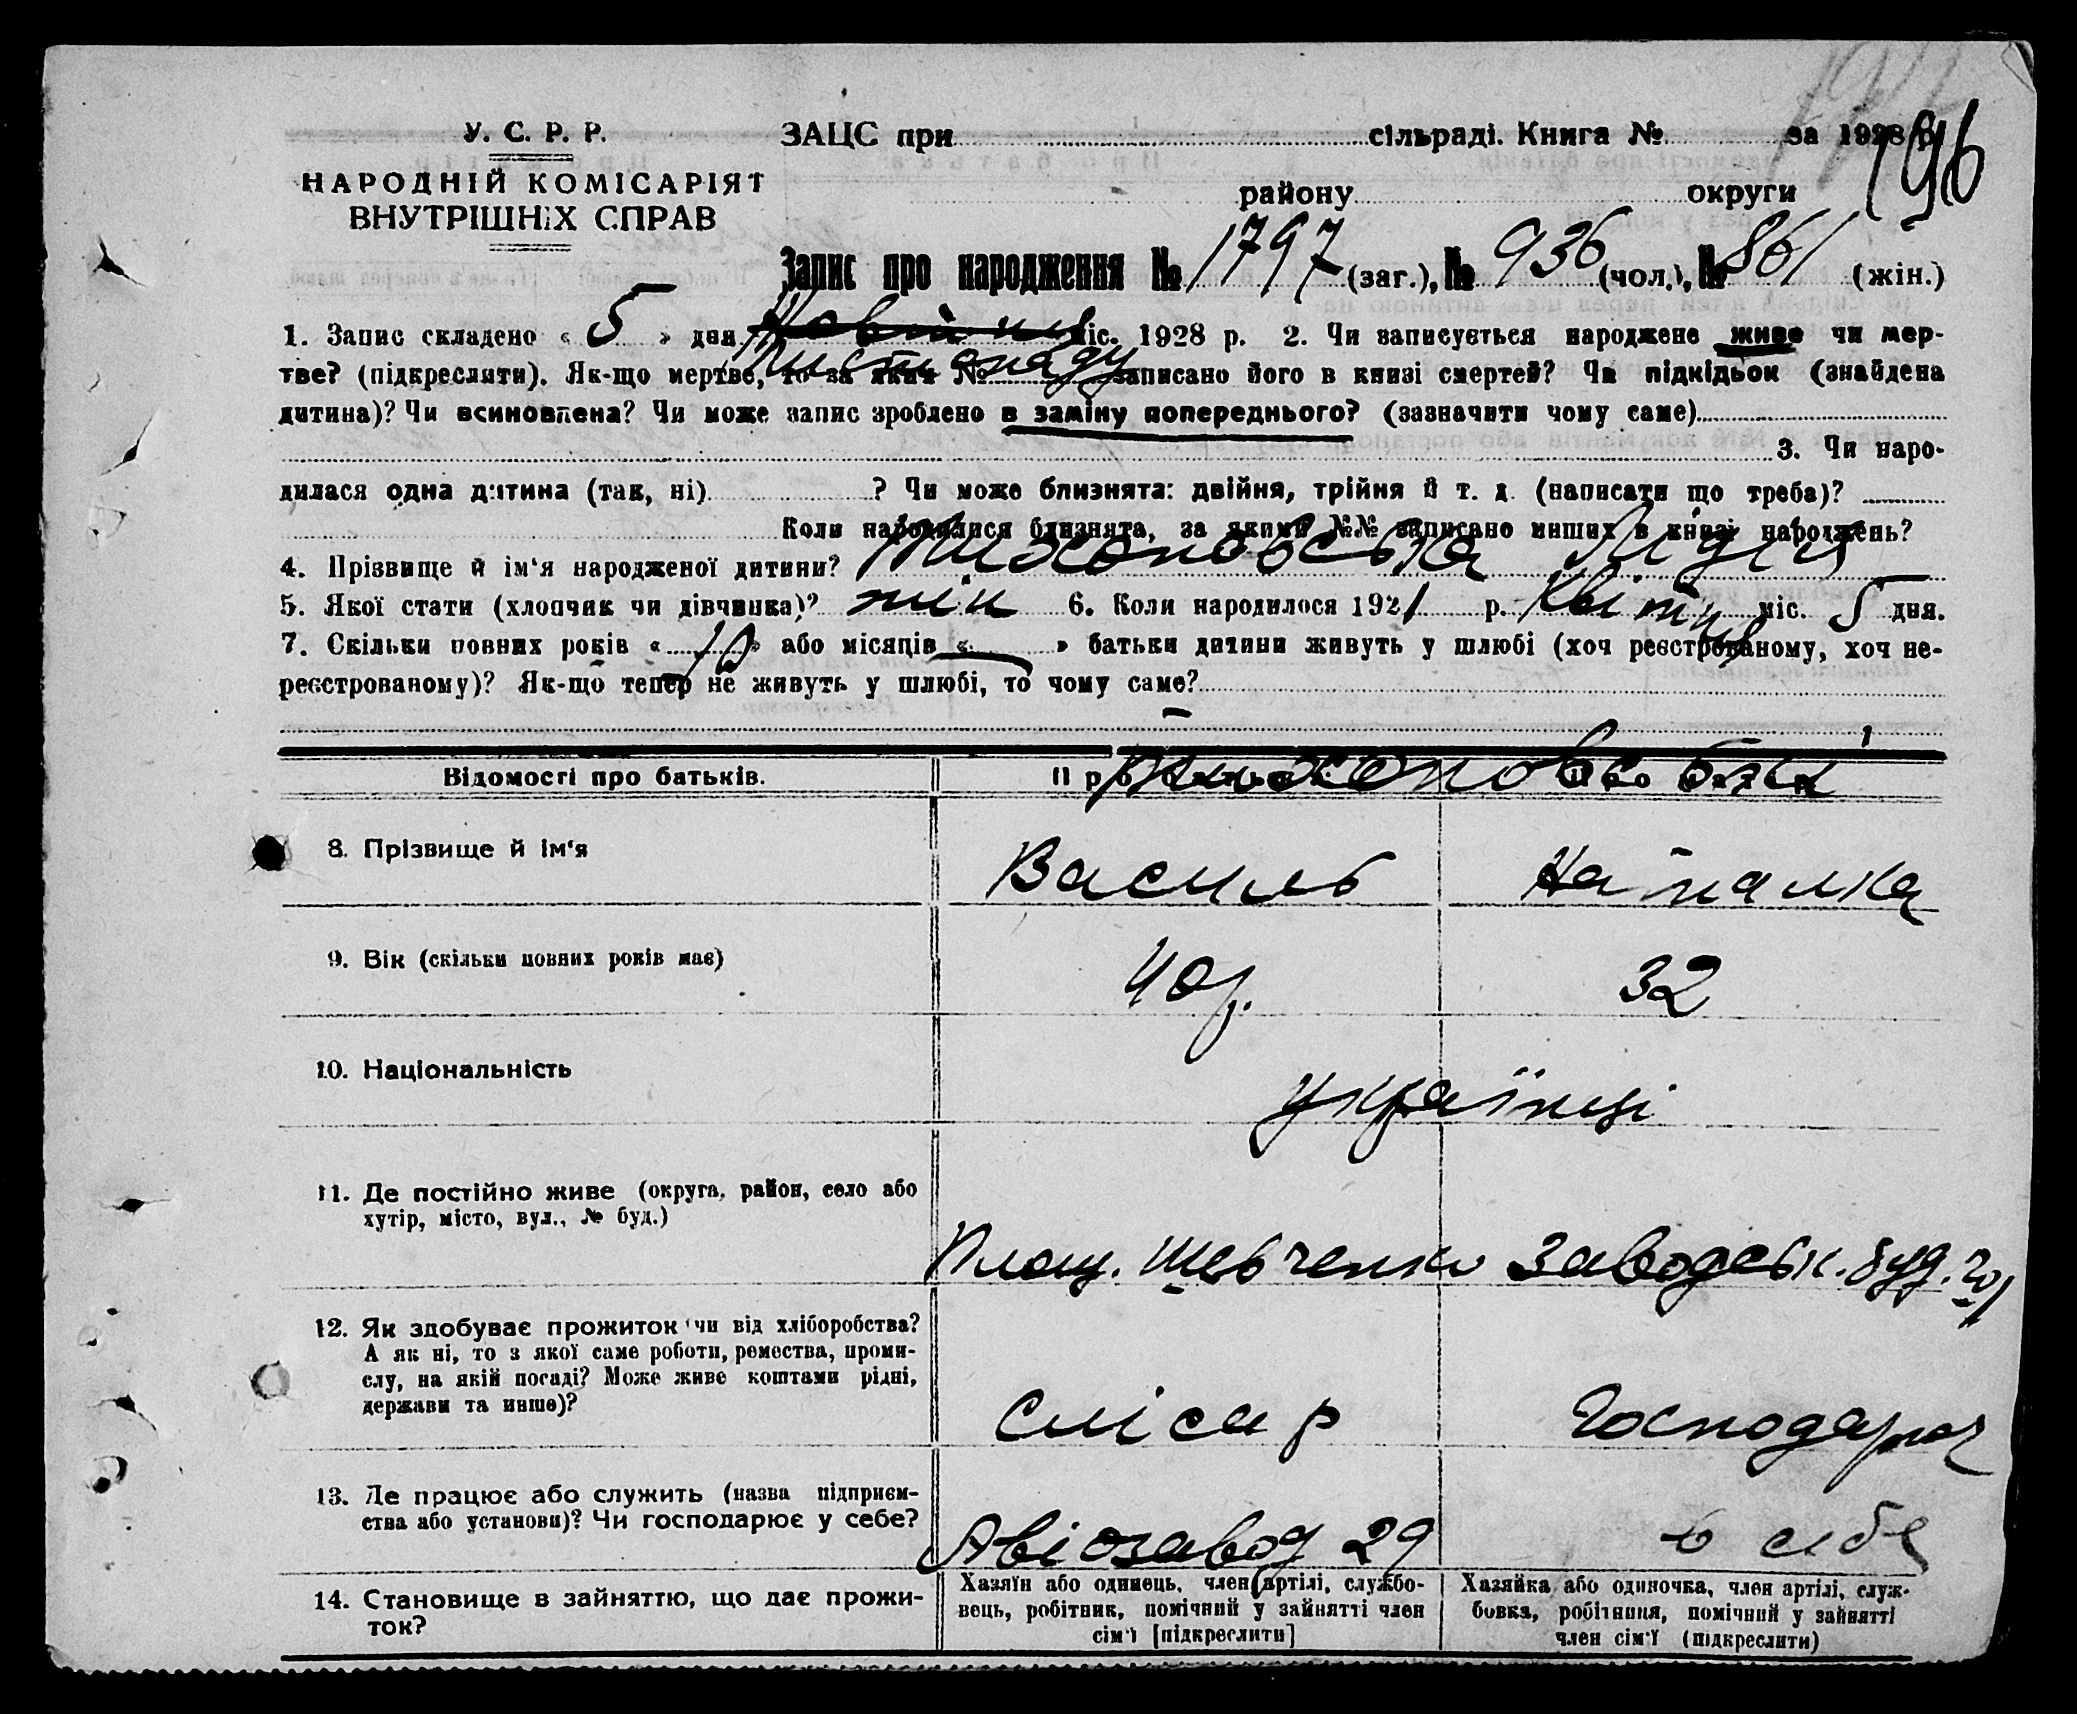 196
У. С. Р. Р.
НАРОДНІЙ КОМІСАРІЯТ
ВНУТРІШНІХ СПРАВ
ЗАЦС при сільраді. Книга № за 1928 р.
району округи
Запис про народження № 1797 (заг.), № 936 (чол.), № 861 (жін.)
1. Запис складено « 5 » дня Квітня міс. 1928 р. 2. Чи записується народжене живе чи мер-
Листопаду
тве? (підкреслити). Як-що мертве, то за яким № записано його в книзі смертей? Чи підкідьок (знайдена
дитина)? Чи всиновлена? Чи може запис зроблено в заміну попереднього? (зазначити чому саме)
3. Чи наро-
дилася одна дитина (так, ні) ? Чи може близнята: двійня, трійня й т. д. (написати що треба)?
Коли народилися близнята, за якими №№ записано инших в книзі народжень?
4. Прізвище й ім'я народженої дитини? Лідія
5. Якої стати (хлопчик чи дівчинка)? жін 6. Коли народилося 1921 р. Квітня міс. 5 дня.
7. Скільки повних років « 10 » або місяців « — » батьки дитини живуть у шлюбі (хоч реєстрованому, хоч не-
реєстрованому)? Як-що тепер не живуть у шлюбі, то чому саме? —
Відомості про батьків. Про батька Про матір
8. Прізвище й ім'я Василь Наталка
9. Вік (скільки повних років має) 40 р. 32
10. Національність українці
11. Де постійно живе (округа, район, село або
хутір, місто, вул., № буд.)
Площ. Шевченка Заводськ. буд.
12. Як здобуває прожиток чи від хліборобства?
А як ні, то з якої саме роботи, ремества, проми-
слу, на якій посаді? Може живе коштами рідні,
держави та инше)?
слісар господарює
13. Де працює або служить (назва підприєм-
ства або установи)? Чи господарює у себе?
Авіозавод 29 в себе
14. Становище в зайняттю, що дає прожи-
ток?
Хазяїн або одинець, член артілі, службо-
вець, робітник, помічний у зайнятті член
сім'ї [підкреслити]
Хазяйка або одиночка, член артілі, служ-
бовка, робітниця, помічний у зайнятті
член сім'ї (підкреслити)